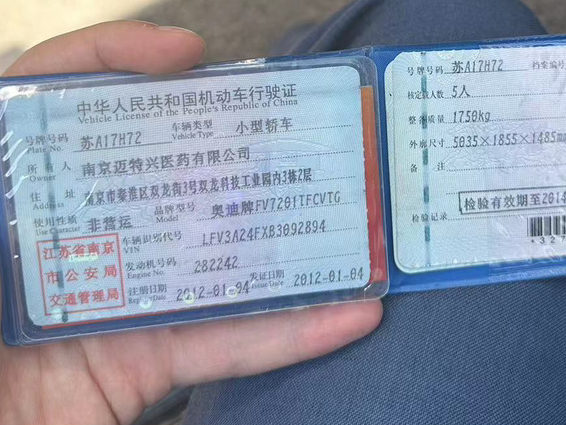 中华人民共和国机动车行驶证
Vehicle License of the People's Republic of China
号牌号码 苏A17H72 车辆类型 小型轿车
Plate No. Vehicle Type
所有人 南京迈特兴医药有限公司
Owner
住址 南京市秦淮区双龙街3号双龙科技工业园内3栋2层
Address
使用性质 非营运 品牌型号 奥迪牌FV7201TFCVTG
Use Character Model
车辆识别代号 LFV3A24FXB3092894
VIN
发动机号码 282242
Engine No.
注册日期 2012-01-04 发证日期 2012-01-04
Register Date Issue Date
江苏省南京
市公安局
交通管理局
号牌号码 苏A17H72 档案编号
核定载人数 5人
整备质量 1750kg
外廓尺寸 5035×1855×1485
备注
检验有效期至2014
检验记录